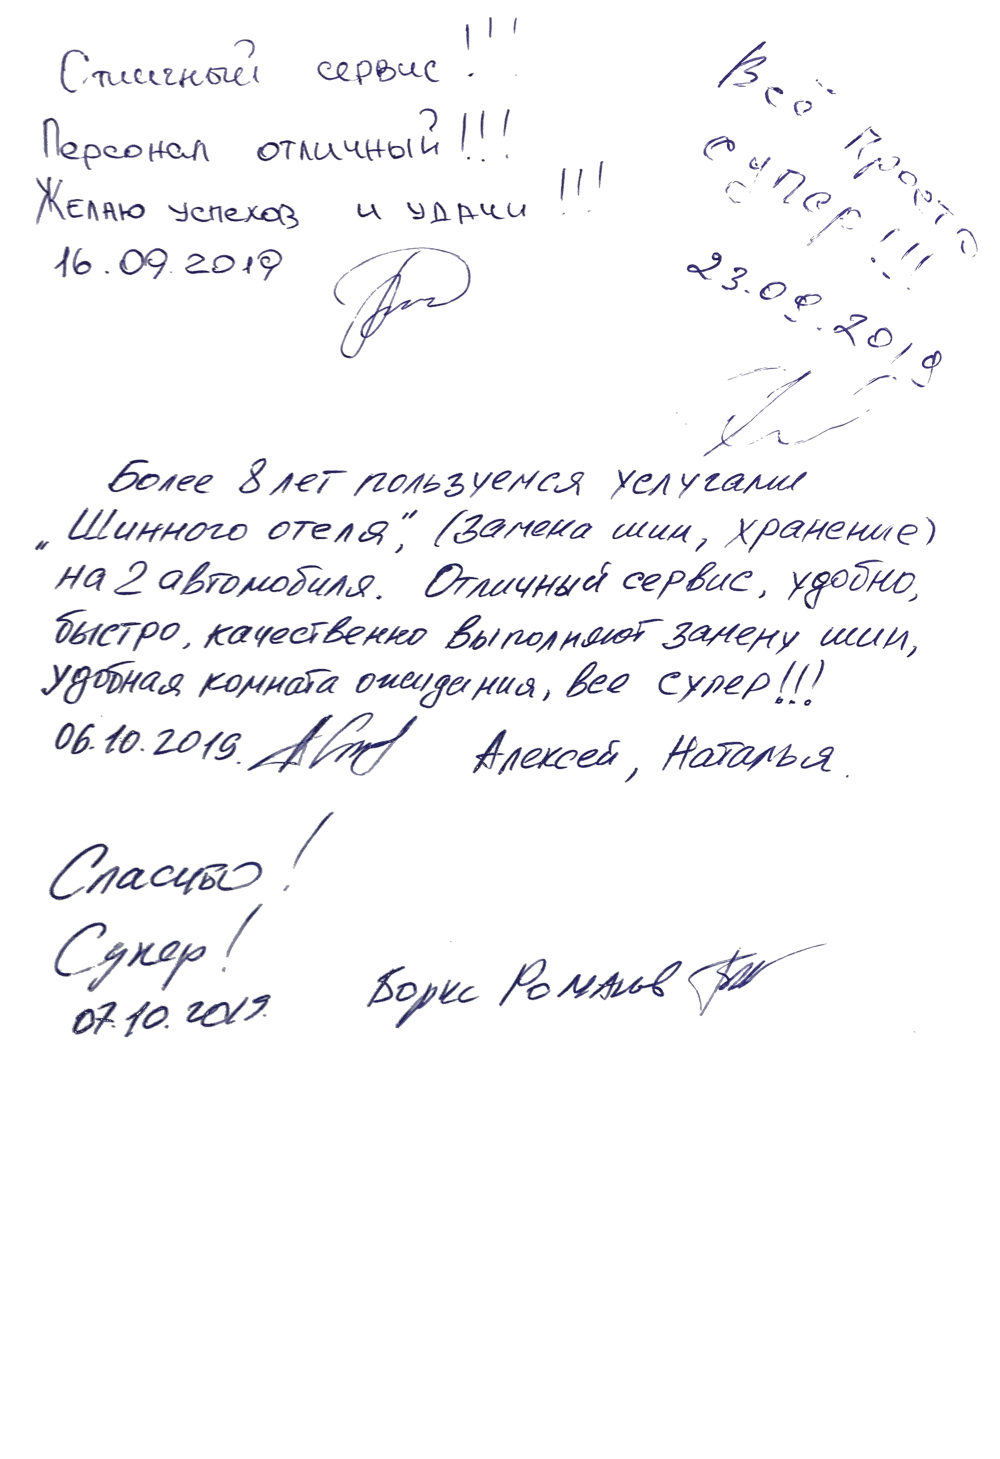 Отличный сервис!!!
Персонал отличный!!!
Желаю успехов и удачи!!!
16.09.2019
Всё просто
супер!!!
23.09.2019
Более 8 лет пользуемся услугами
„Шинного отеля“, (замена шин, хранение)
на 2 автомобиля. Отличный сервис, удобно,
быстро, качественно выполняют замену шин,
удобная комната ожидания, все супер!!!
06.10.2019. Алексей, Наталья.
Спасибо!
Супер!
07.10.2019. Борис Романов